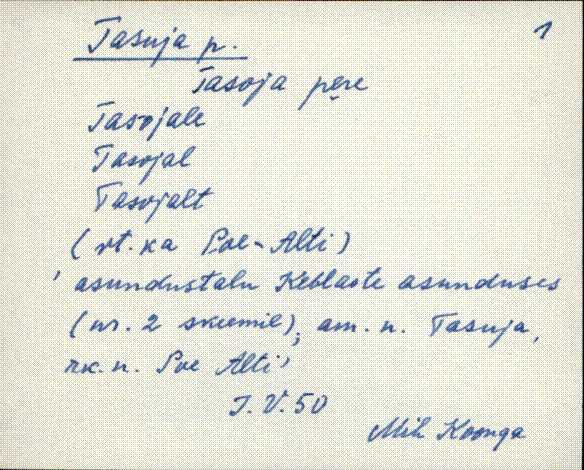 Tasuja p. 1
Tasoja pe̬re
Tasojale
Tasojal
Tasojalt
(vt. ka Poe-Alti)
' asundustalu Keblaste asunduses
(nr. 2 skeemil), am. n. Tasuja,
rk. n. Poe Alti'
J. V. 50
Mih Koonga